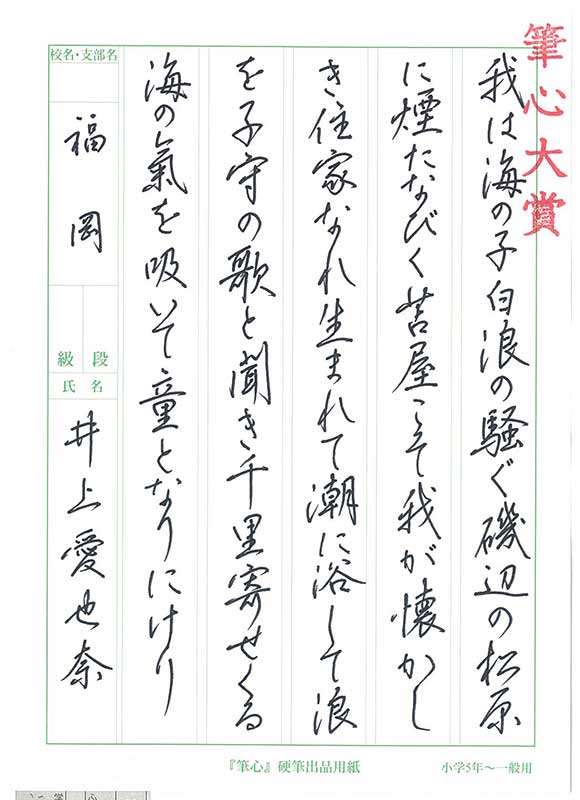 筆心大賞
我は海の子白浪の騒ぐ磯辺の松原
に煙たなびく苫屋こそ我が懐かし
き住家なれ生まれて潮に浴して浪
を子守の歌と聞き千里寄せくる
海の氣を吸いて童となりにけり
校名・支部名
福岡
段
級
氏名
井上愛也奈
『筆心』硬筆出品用紙
小学5年〜一般用